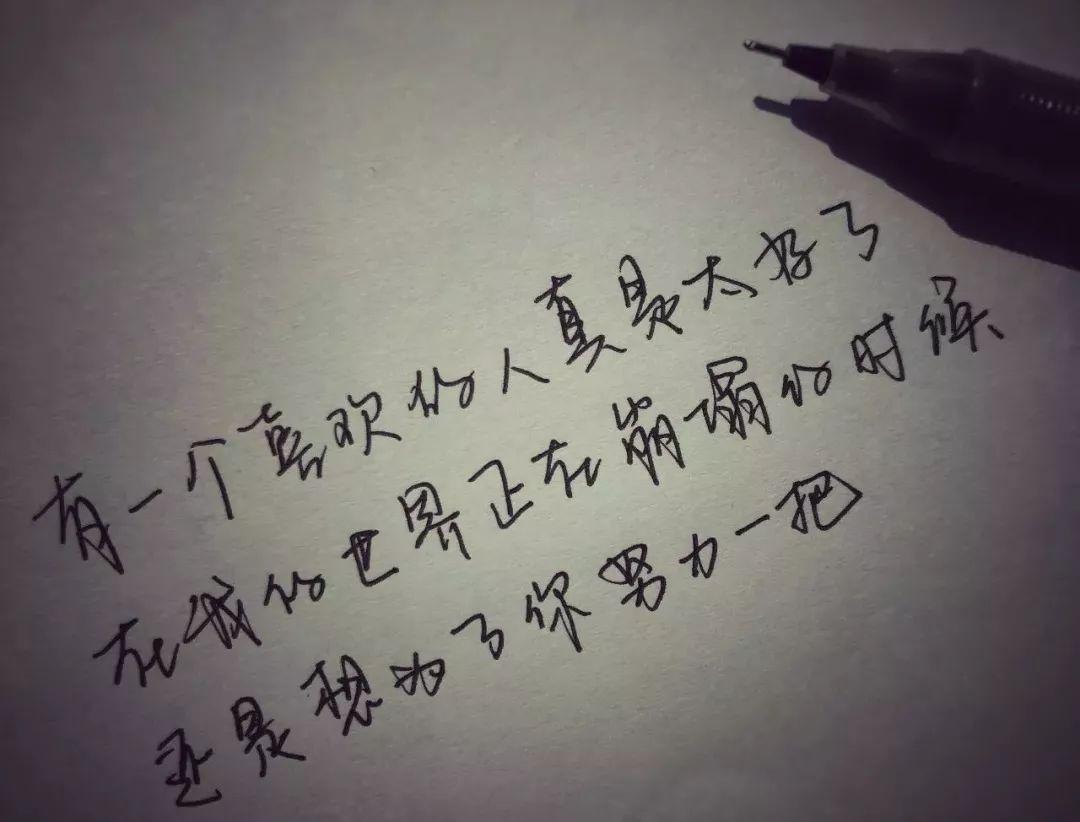 有一个喜欢的人真是太好了
在我的世界正在崩塌的时候
还是想为了你努力一把